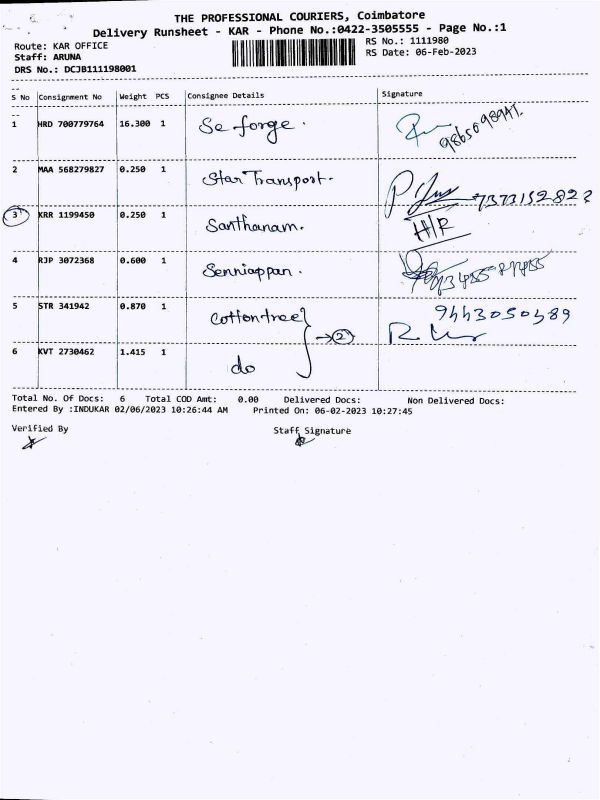 THE PROFESSIONAL COURIERS, Coimbatore
Delivery Runsheet - KAR - Phone No.:0422-3505555 - Page No.:1
Route: KAR OFFICE
RS No.: 1111980
Staff: ARUNA
RS Date: 06-Feb-2023
DRS No.: DCJB111198001
S No Consignment No Weight PCS Consignee Details Signature
1 HRD 700779764 16.300 1 Se forge.
2 MAA 568279827 0.250 1 Star Transport. 7373152823
3 KRR 1199450 0.250 1 Santhanam. H/R
4 RJP 3072368 0.600 1 Senniappan.
5 STR 341942 0.870 1 Cottontree 9443050589
→2
6 KVT 2730462 1.415 1 do
Total No. Of Docs: 6 Total COD Amt: 0.00 Delivered Docs: Non Delivered Docs:
Entered By :INDUKAR 02/06/2023 10:26:44 AM Printed On: 06-02-2023 10:27:45
Verified By Staff Signature